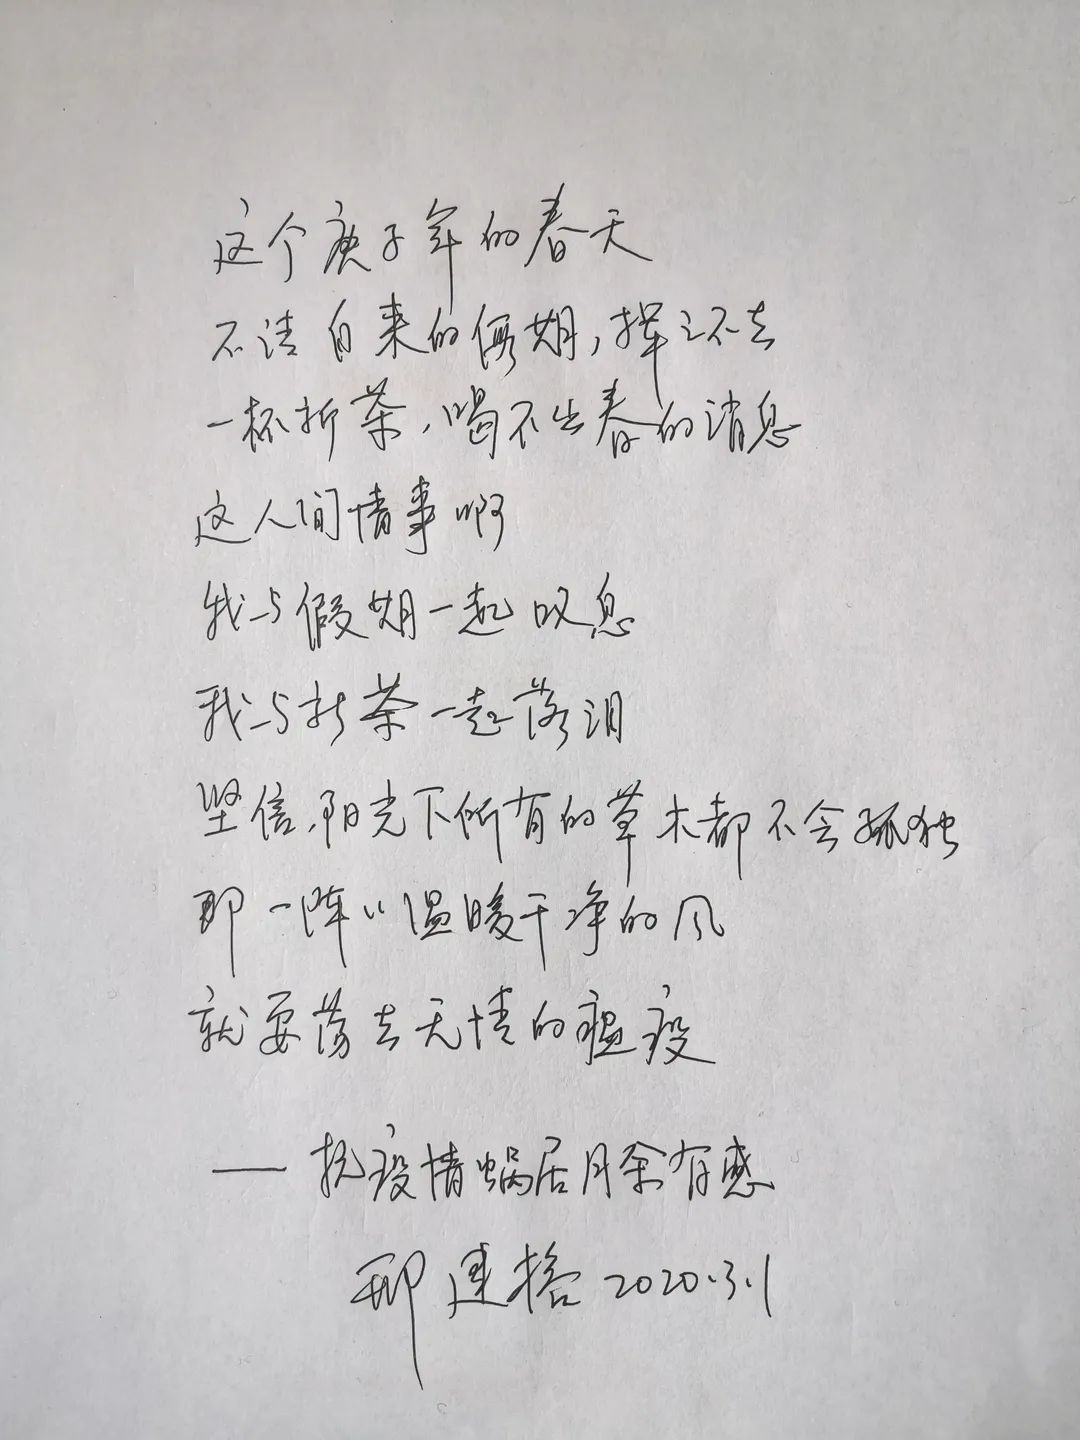 这个庚子年的春天
不请自来的假期,挥之不去
一杯新茶,喝不出春的消息
这人间情事啊
我与假期一起叹息
我与新茶一起落泪
坚信,阳光下所有的草木都不会孤独
那一阵阵温暖干净的风
就要荡去无情的瘟疫
——抗疫情蜗居月余有感
邢建格 2020.3.1